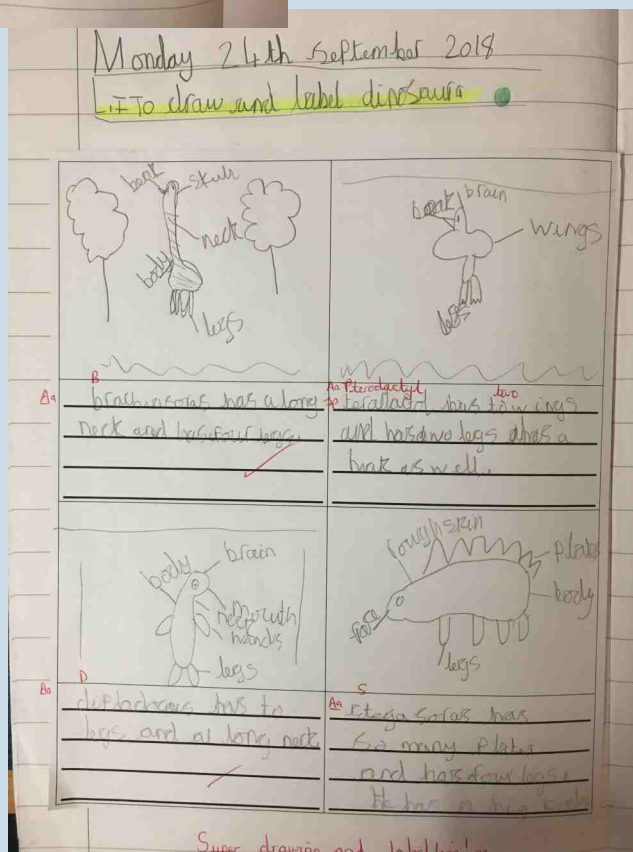 Monday 24th september 2018
L.I To draw and label dinosaurs
beak
skull
neck
body
legs
beak
brain
wings
legs
B
Aa
has a long
neck and has four legs.
Aa Pterodactyl
two
has to wings
and has two legs
beak as well.
body
brain
neck
mouth
hands
legs
rough skin
plates
body
face
legs
D
Aa
has to
legs and a long neck
S
Aa
stega soras has
so many plates
and has four legs.
He has a big body
Super drawing and labelling